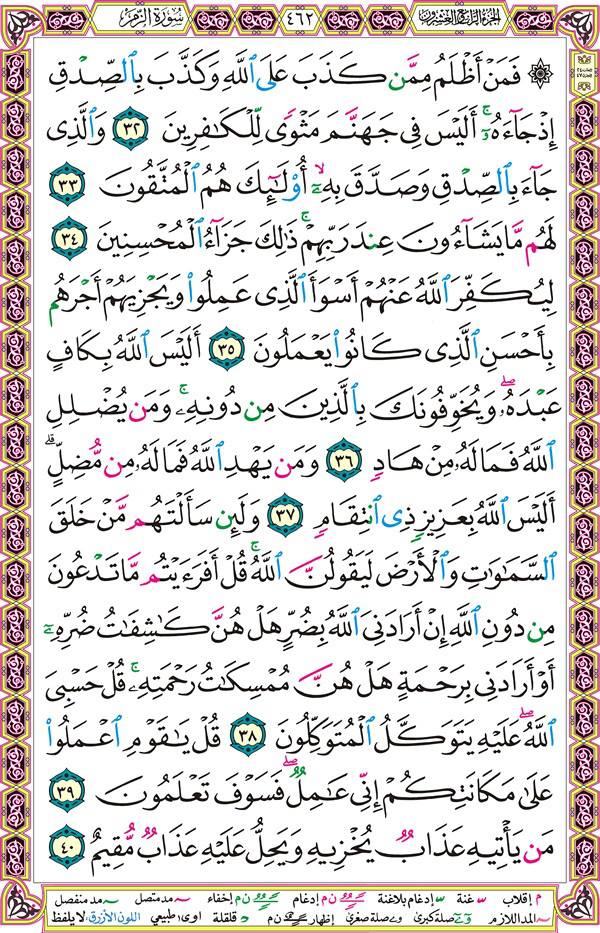 الجزء الرابع والعشرون
٤٦٢
سورة الزمر
۞ فَمَنْ أَظْلَمُ مِمَّن كَذَبَ عَلَى ٱللَّهِ وَكَذَّبَ بِٱلصِّدْقِ
إِذْ جَآءَهُۥٓ ۚ أَلَيْسَ فِى جَهَنَّمَ مَثْوًى لِّلْكَـٰفِرِينَ ٣٢ وَٱلَّذِى
جَآءَ بِٱلصِّدْقِ وَصَدَّقَ بِهِۦٓ ۙ أُو۟لَـٰٓئِكَ هُمُ ٱلْمُتَّقُونَ ٣٣
لَهُم مَّا يَشَآءُونَ عِندَ رَبِّهِمْ ۚ ذَٰلِكَ جَزَآءُ ٱلْمُحْسِنِينَ ٣٤
لِيُكَفِّرَ ٱللَّهُ عَنْهُمْ أَسْوَأَ ٱلَّذِى عَمِلُوا۟ وَيَجْزِيَهُمْ أَجْرَهُم
بِأَحْسَنِ ٱلَّذِى كَانُوا۟ يَعْمَلُونَ ٣٥ أَلَيْسَ ٱللَّهُ بِكَافٍ
عَبْدَهُۥ ۖ وَيُخَوِّفُونَكَ بِٱلَّذِينَ مِن دُونِهِۦ ۚ وَمَن يُضْلِلِ
ٱللَّهُ فَمَا لَهُۥ مِنْ هَادٍ ٣٦ وَمَن يَهْدِ ٱللَّهُ فَمَا لَهُۥ مِن مُّضِلٍّ ۗ
أَلَيْسَ ٱللَّهُ بِعَزِيزٍ ذِى ٱنتِقَامٍ ٣٧ وَلَئِن سَأَلْتَهُم مَّنْ خَلَقَ
ٱلسَّمَـٰوَٰتِ وَٱلْأَرْضَ لَيَقُولُنَّ ٱللَّهُ ۚ قُلْ أَفَرَءَيْتُم مَّا تَدْعُونَ
مِن دُونِ ٱللَّهِ إِنْ أَرَادَنِىَ ٱللَّهُ بِضُرٍّ هَلْ هُنَّ كَـٰشِفَـٰتُ ضُرِّهِۦٓ
أَوْ أَرَادَنِى بِرَحْمَةٍ هَلْ هُنَّ مُمْسِكَـٰتُ رَحْمَتِهِۦ ۚ قُلْ حَسْبِىَ
ٱللَّهُ ۖ عَلَيْهِ يَتَوَكَّلُ ٱلْمُتَوَكِّلُونَ ٣٨ قُلْ يَـٰقَوْمِ ٱعْمَلُوا۟
عَلَىٰ مَكَانَتِكُمْ إِنِّى عَـٰمِلٌ ۖ فَسَوْفَ تَعْلَمُونَ ٣٩
مَن يَأْتِيهِ عَذَابٌ يُخْزِيهِ وَيَحِلُّ عَلَيْهِ عَذَابٌ مُّقِيمٌ ٤٠
م إقلاب غنة إدغام بلاغنة م إدغام ن م إخفاء مد متصل مد منفصل
المد اللازم صلة كبرى صلة صغرى إظهار ن م قلقلة اوى طبيعي اللون الأزرق: لا يلفظ